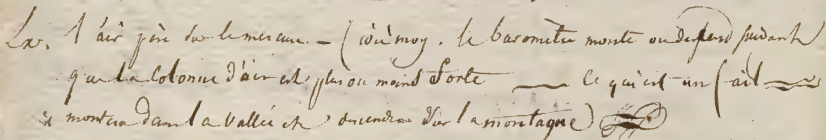 Ex. l'air pèse sur le mercure – ( voiemoy. le barometre monte ou descend suivant
que la Colonne d'air est plus ou moins forte — Ce qui est un fait —
il montera dans la vallée et descendra sur la montagne)